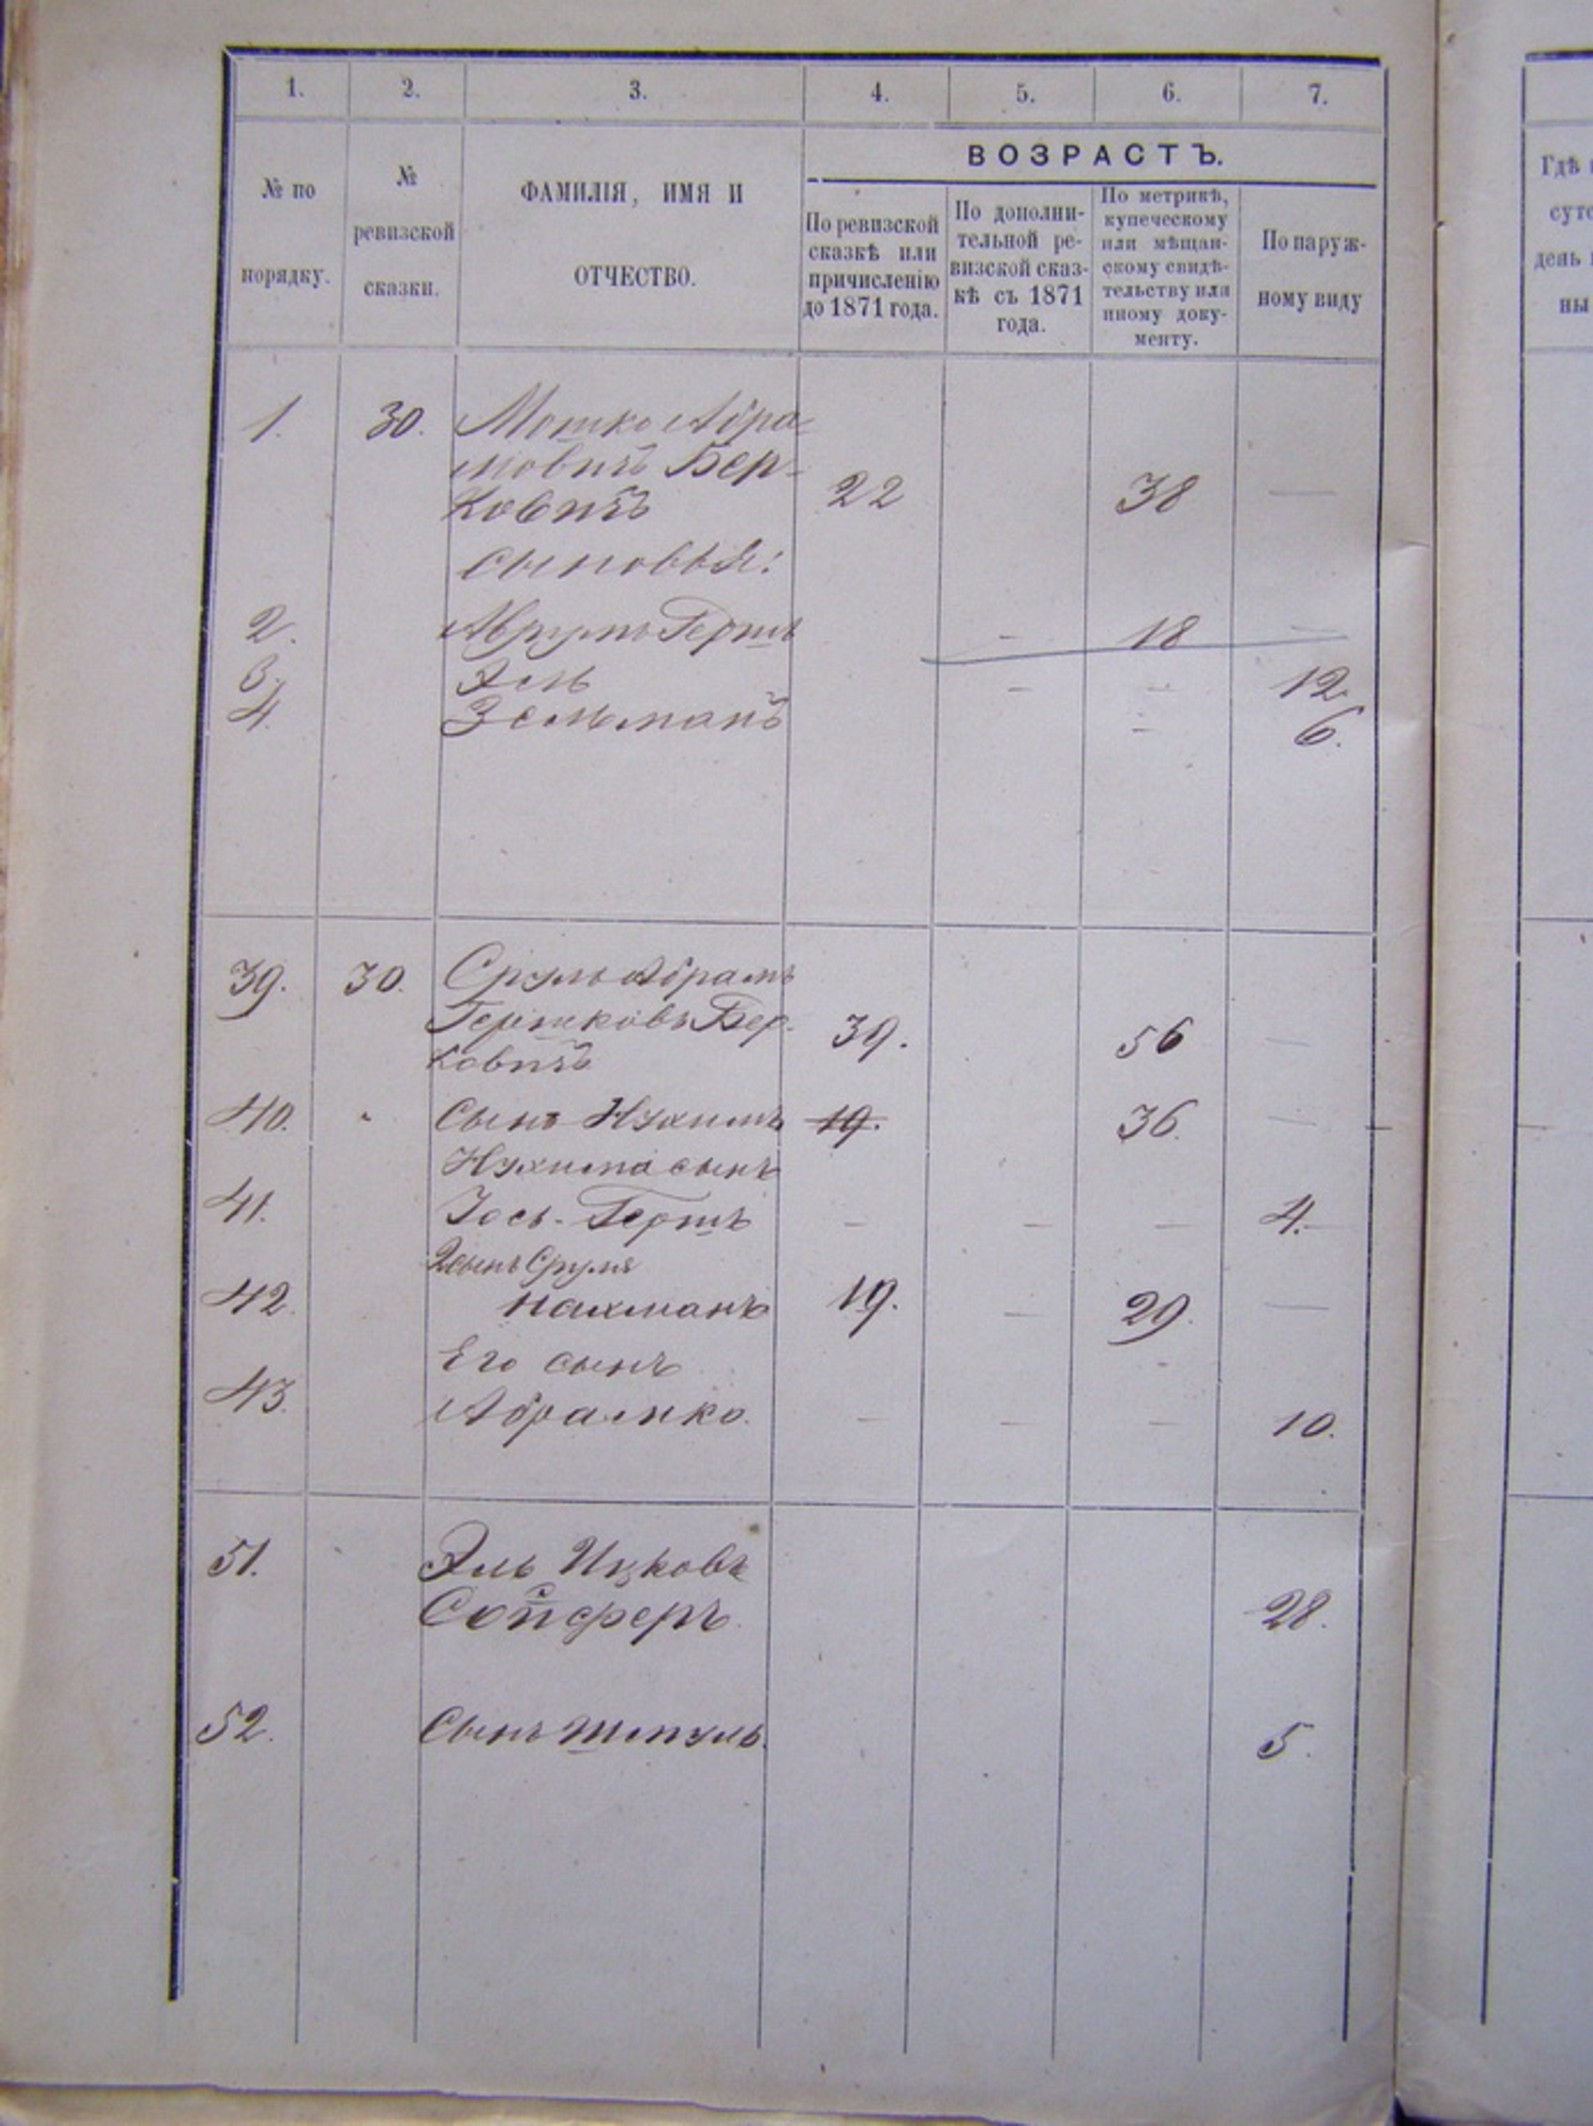 1. 2. 3. 4. 5. 6. 7.
№ по порядку.
№ ревизской сказки.
ФАМИЛІЯ, ИМЯ И ОТЧЕСТВО.
ВОЗРАСТЪ.
По ревизской
сказкѣ или
причисленію
до 1871 года.
По дополни-
тельной ре-
визской сказ-
кѣ съ 1871
года.
По метрикѣ,
купеческому
или мѣщан-
скому свидѣ-
тельству или
иному доку-
менту.
По наруж-
ному виду
Гдѣ
день
ны
1. 30. Мошко Абра-
мовичъ Бер-
ковичъ 22 38 —
сыновья:
2. Аврумъ Гершъ — 18 —
3. Эль — — 12.
4. Зельманъ — 6.
39. 30. Сруль Абрамъ
Гершковъ Бер-
ковичъ 39. 56 —
40. " Сынъ Нухимъ 19. 36. —
Нухима сынъ
41. Іось-Гершъ — — — 4.
2 сынъ Сруля
42. Нахманъ 19. — 29. —
Его сынъ
43. Абрамко. — — — 10.
51. Эль Ицковъ
Сойферъ. 28.
52. Сынъ Шмуль. 5.